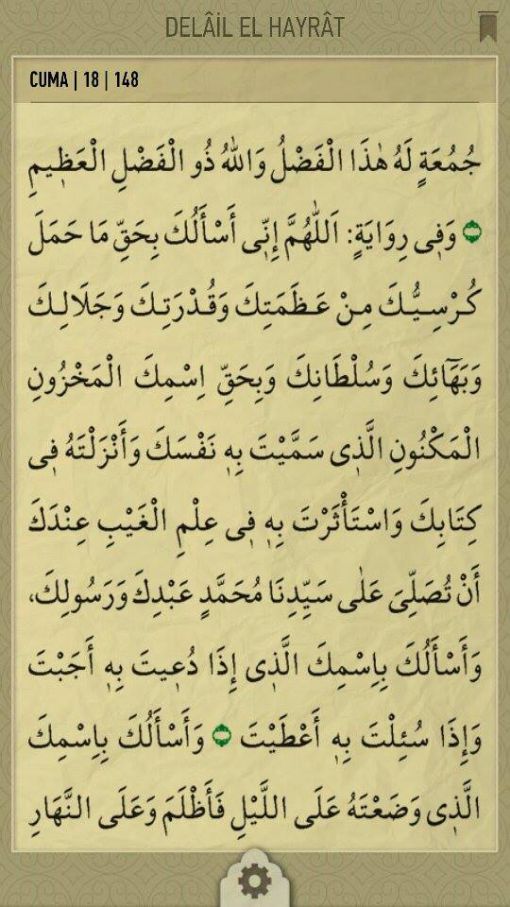 DELÂİL EL HAYRÂT
CUMA | 18 | 148
جُمُعَةٍ لَهُ هٰذَا الْفَضْلُ وَاللهُ ذُو الْفَضْلِ الْعَظ۪يمِ
وَف۪ى رِوَايَةٍ: اَللّٰهُمَّ إِنّ۪ى أَسْأَلُكَ بِحَقِّ مَا حَمَلَ
كُرْسِيُّكَ مِنْ عَظَمَتِكَ وَقُدْرَتِكَ وَجَلَالِكَ
وَبَهَٓائِكَ وَسُلْطَانِكَ وَبِحَقِّ اِسْمِكَ الْمَخْزُونِ
الْمَكْنُونِ الَّذ۪ى سَمَّيْتَ بِه۪ نَفْسَكَ وَأَنْزَلْتَهُ ف۪ى
كِتَابِكَ وَاسْتَأْثَرْتَ بِه۪ ف۪ى عِلْمِ الْغَيْبِ عِنْدَكَ
أَنْ تُصَلِّىَ عَلٰى سَيِّدِنَا مُحَمَّدٍ عَبْدِكَ وَرَسُولِكَ،
وَأَسْأَلُكَ بِاِسْمِكَ الَّذ۪ى إِذَا دُع۪يتَ بِه۪ أَجَبْتَ
وَإِذَا سُئِلْتَ بِه۪ أَعْطَيْتَ وَأَسْأَلُكَ بِاِسْمِكَ
الَّذ۪ى وَضَعْتَهُ عَلَى اللَّيْلِ فَأَظْلَمَ وَعَلَى النَّهَارِ